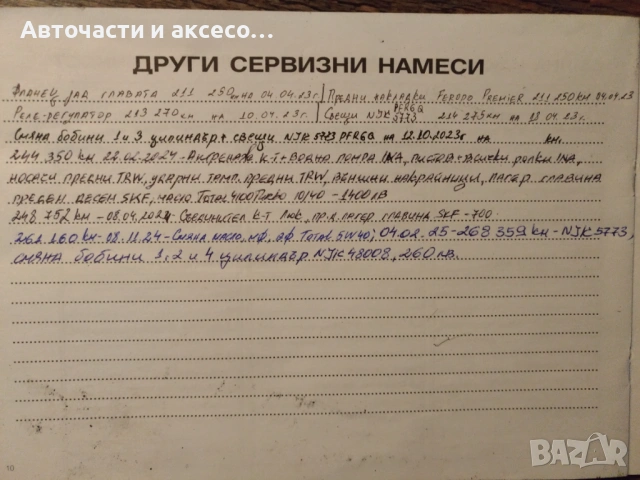 Авточасти и аксесо...
ДРУГИ СЕРВИЗНИ НАМЕСИ
Фланец зад главата 211 250 км на 04.04.23г. Предни накладки Ferodo Premier 211 250км 04.04.23
Реле-регулатор 213 270 км на 10.04.23г. Свещи NJK PFR6Q 5773 214 275 км на 13 04 23г.
Смяна бобини 1 и 3 цилиндър + свещи NJK 5773 PFR6Q на 12.10.2023г на км.
244 350 км 22.02.2024 - Ангренаж к-т + водна помпа INA, пистов + всички ролки INA,
носачи предни TRW, ударни тамп. предни TRW, външни накрайници, лагер главина
преден десен SKF, масло Total 4100 Turbo 10/40 - 1400 лв
248 752 км - 08.04.2024 - Съединител к-т Luk, пр.л лагер главина SKF - 700
262 160 км - 08.11.24 - Смяна масло, мф, вф Total 5W40; 04.02.25 - 268 359 км - NJK 5773,
смяна бобини 1, 2 и 4 цилиндър NJK 48008, 260 лв.
10
BAZAR